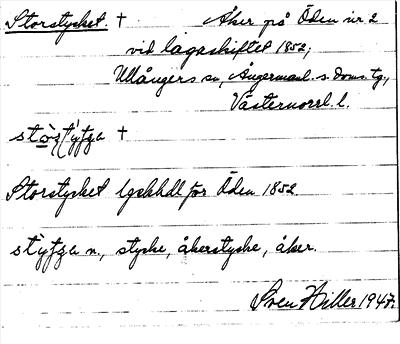 Storstycket. † Åker på Öden nr 2
vid lagaskiftet 1852;
Ullångers sn, Ångermanl. s. doms. tg.,
Västernorrl. l.
Storstycket lgskhdl för Öden 1852.
n., stycke, åkerstycke, åker.
Sven Hiller 1947.